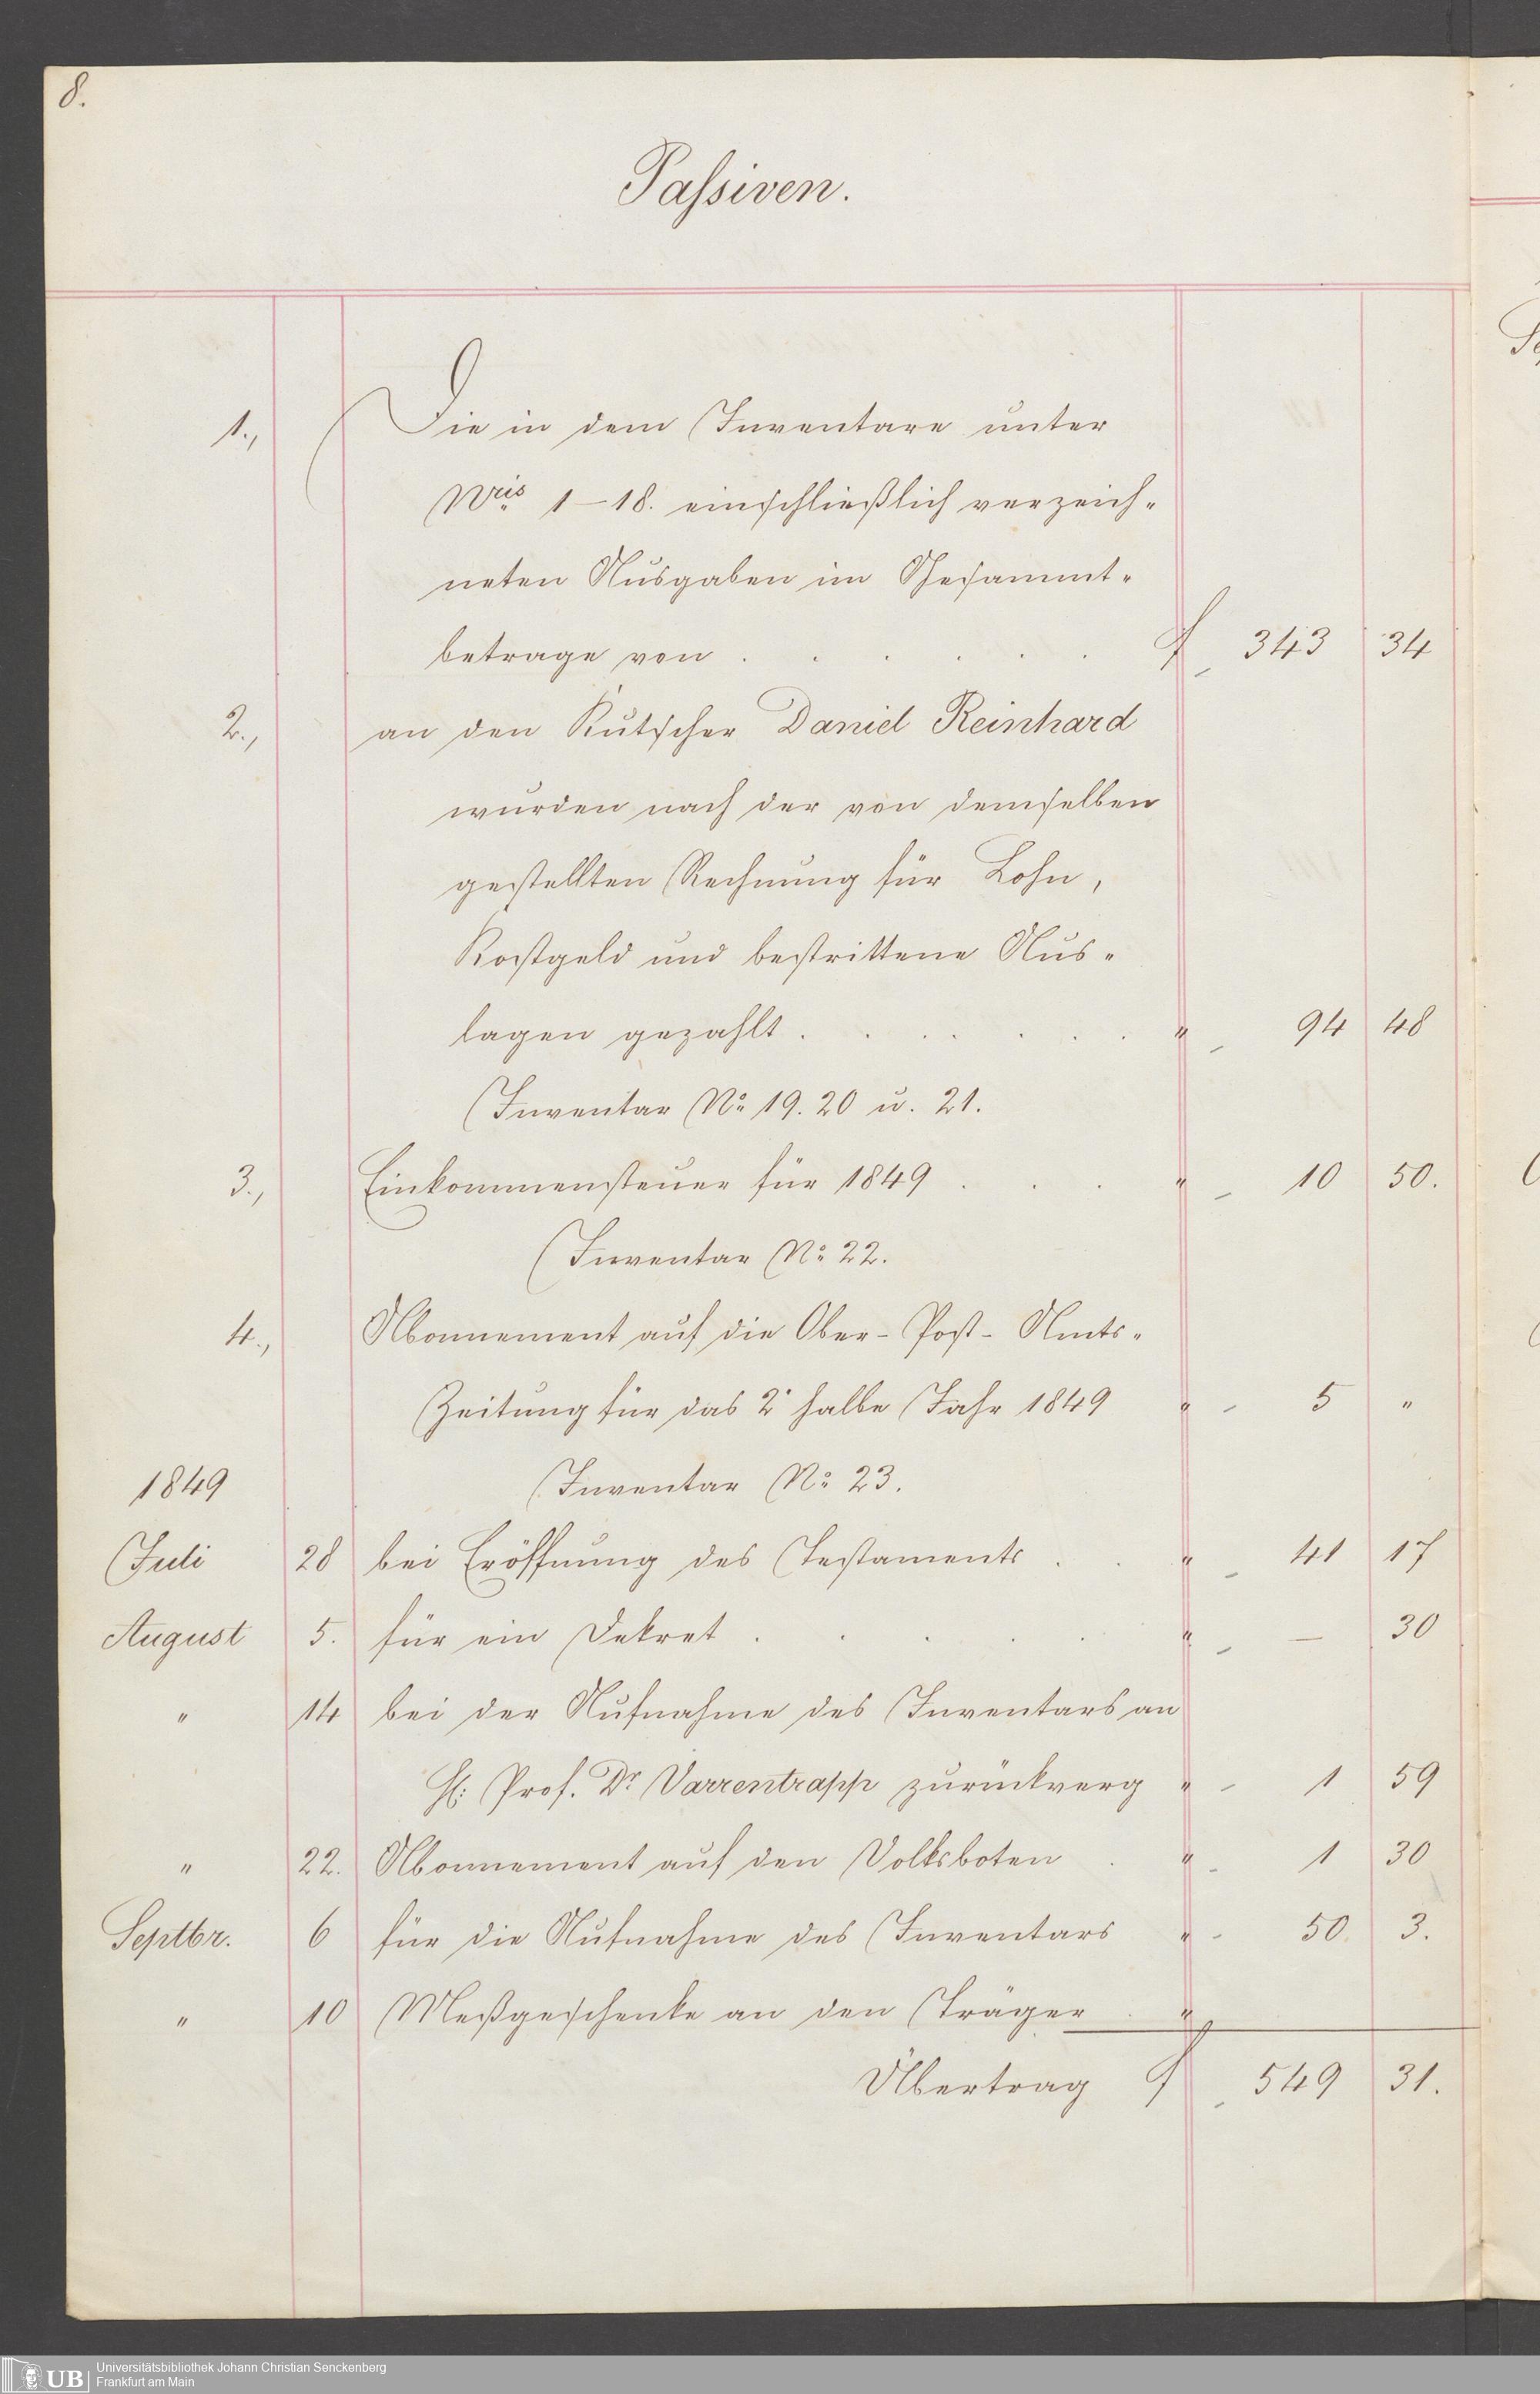 8.
Passiven.
1., Die in dem Inventare unter
Nris 1–18. einschließlich verzeich-
neten Ausgaben im Gesammt-
betrage von . . . . . . f 343 34
2., an den Kutscher Daniel Reinhard
wurden nach der von demselben
gestellten Rechnung für Lohn,
Kostgeld und bestrittene Aus-
lagen gezahlt . . . . . . . " 94 48
Inventar No 19. 20 u. 21.
3., Einkommensteuer für 1849 . . . " 10 50.
Inventar No 22.
4., Abonnement auf die Ober-Post-Amts-
Zeitung für das 2. halbe Jahr 1849 " 5 "
1849 Inventar No 23.
Juli 28 bei Eröffnung des Testaments . . " 41 17
August 5. für ein Dekret . . . . . " — 30
" 14 bei der Aufnahme des Inventars an
H: Prof. Dr Varrentrapp zurückverg " 1 59
" 22. Abonnement auf den Volksboten . " 1 30
Septbr. 6 für die Aufnahme des Inventars " 50. 3.
" 10 Meßgeschenke an den Träger . "
Übertrag f 549 31.
UB Universitätsbibliothek Johann Christian Senckenberg
Frankfurt am Main